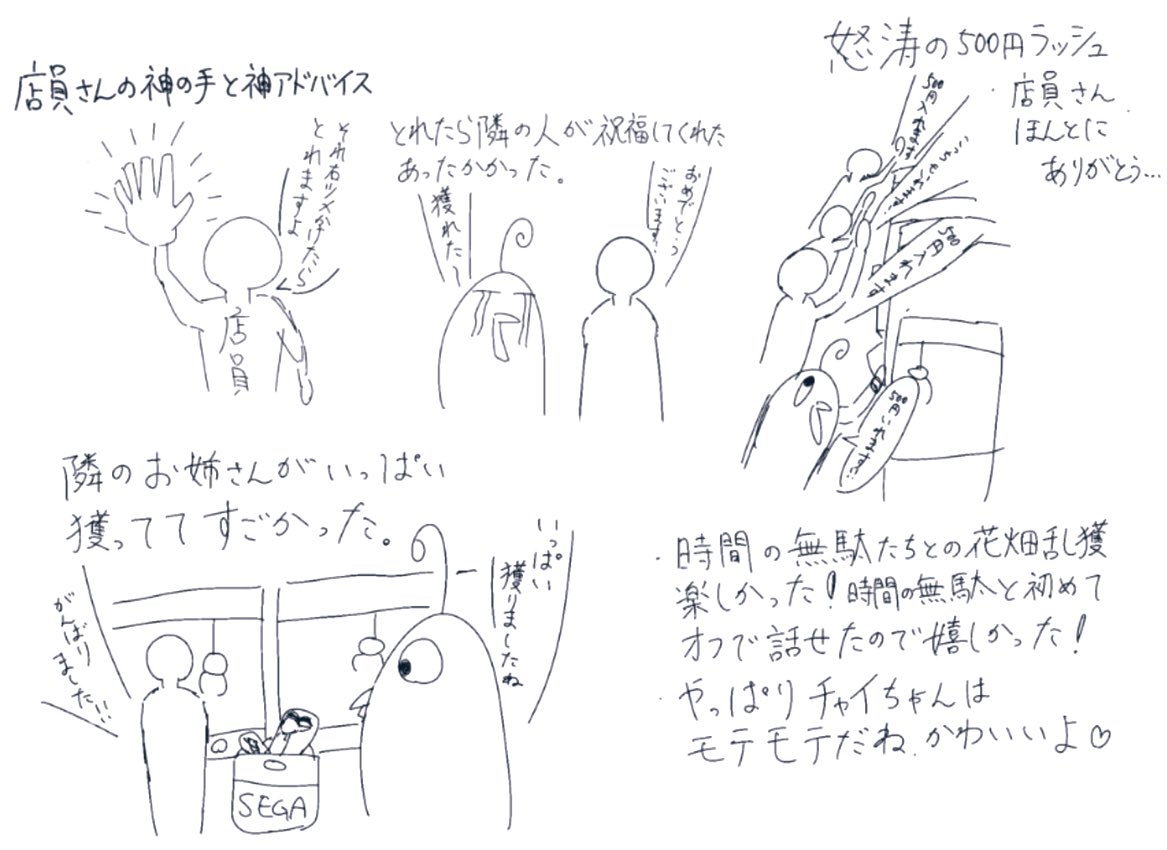 店員さんの神の手と神アドバイス
それ右ツメかけたら
とれますよ
店員
とれたら隣の人が祝福してくれた
あったかかった。
獲れた〜
おめでとう
ございます!
怒涛の500円ラッシュ
店員さん
ほんとに
ありがとう…
500円入れますね
500円入れますね
隣のお姉さんがいっぱい
獲っててすごかった。
いっぱい
獲りましたね
がんばり
ました!!
SEGA
・時間の無駄たちとの花畑乱獲
楽しかった!時間の無駄と初めて
オフで話せたので嬉しかった!
・やっぱりチャイちゃんは
モテモテだね、かわいいよ♡